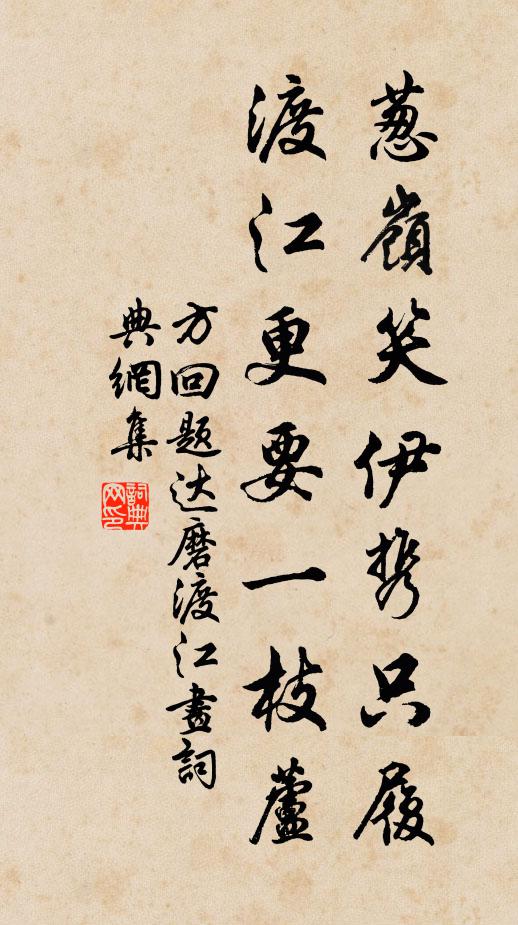 葱嶺笑伊携只履
渡江更要一枝蘆
方回題达磨渡江畫詞
典網集
詞典
网印